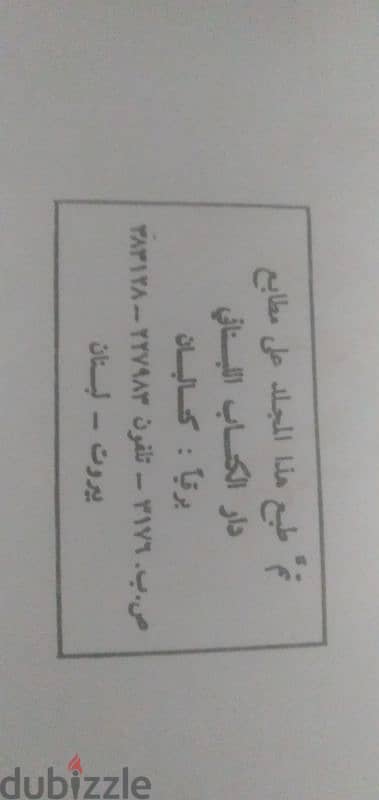 تمّ طبع هذا المجلد على مطابع
دار الكتاب اللبناني
برقياً : كتالبان
ص.ب. ٣١٧٦ - تلفون ٢٣٧٩٨٣ - ٢٨٣١٢٨
بيروت - لبنان
dubizzle